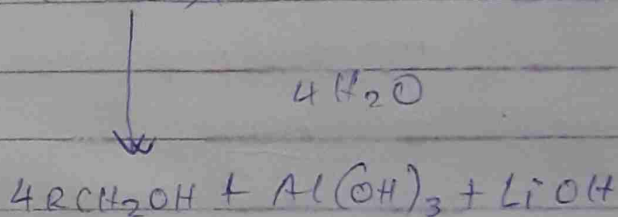 4 H₂O
4RCH₂OH + Al(OH)₃ + LiOH